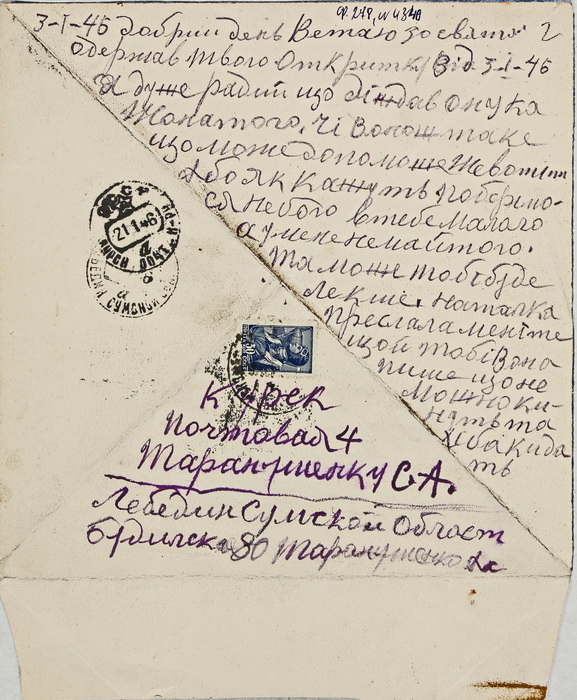 ф. 278, № 434а
3-I-46 добрий день Ветаю зо святом
одержав твого Открытку Від 3-I-46
Я дуже радий що дождав онука
Жонатого, Чі Волош таке
що може допоможе Жевотини
Або як Кажуть поберімо-
ся небого в тебе малаго
а у мене немайтого.
та може тобі буде
лекше, наталка
преслала мені те
що й тобі Вона
пише що не
Можно ки-
нуть та
Хіба кида
ть
21 1 46
Курск
почтовая 4
Таранушенку С.А.
Лебедин Сумской Област
Будилска 80 Таранушенко